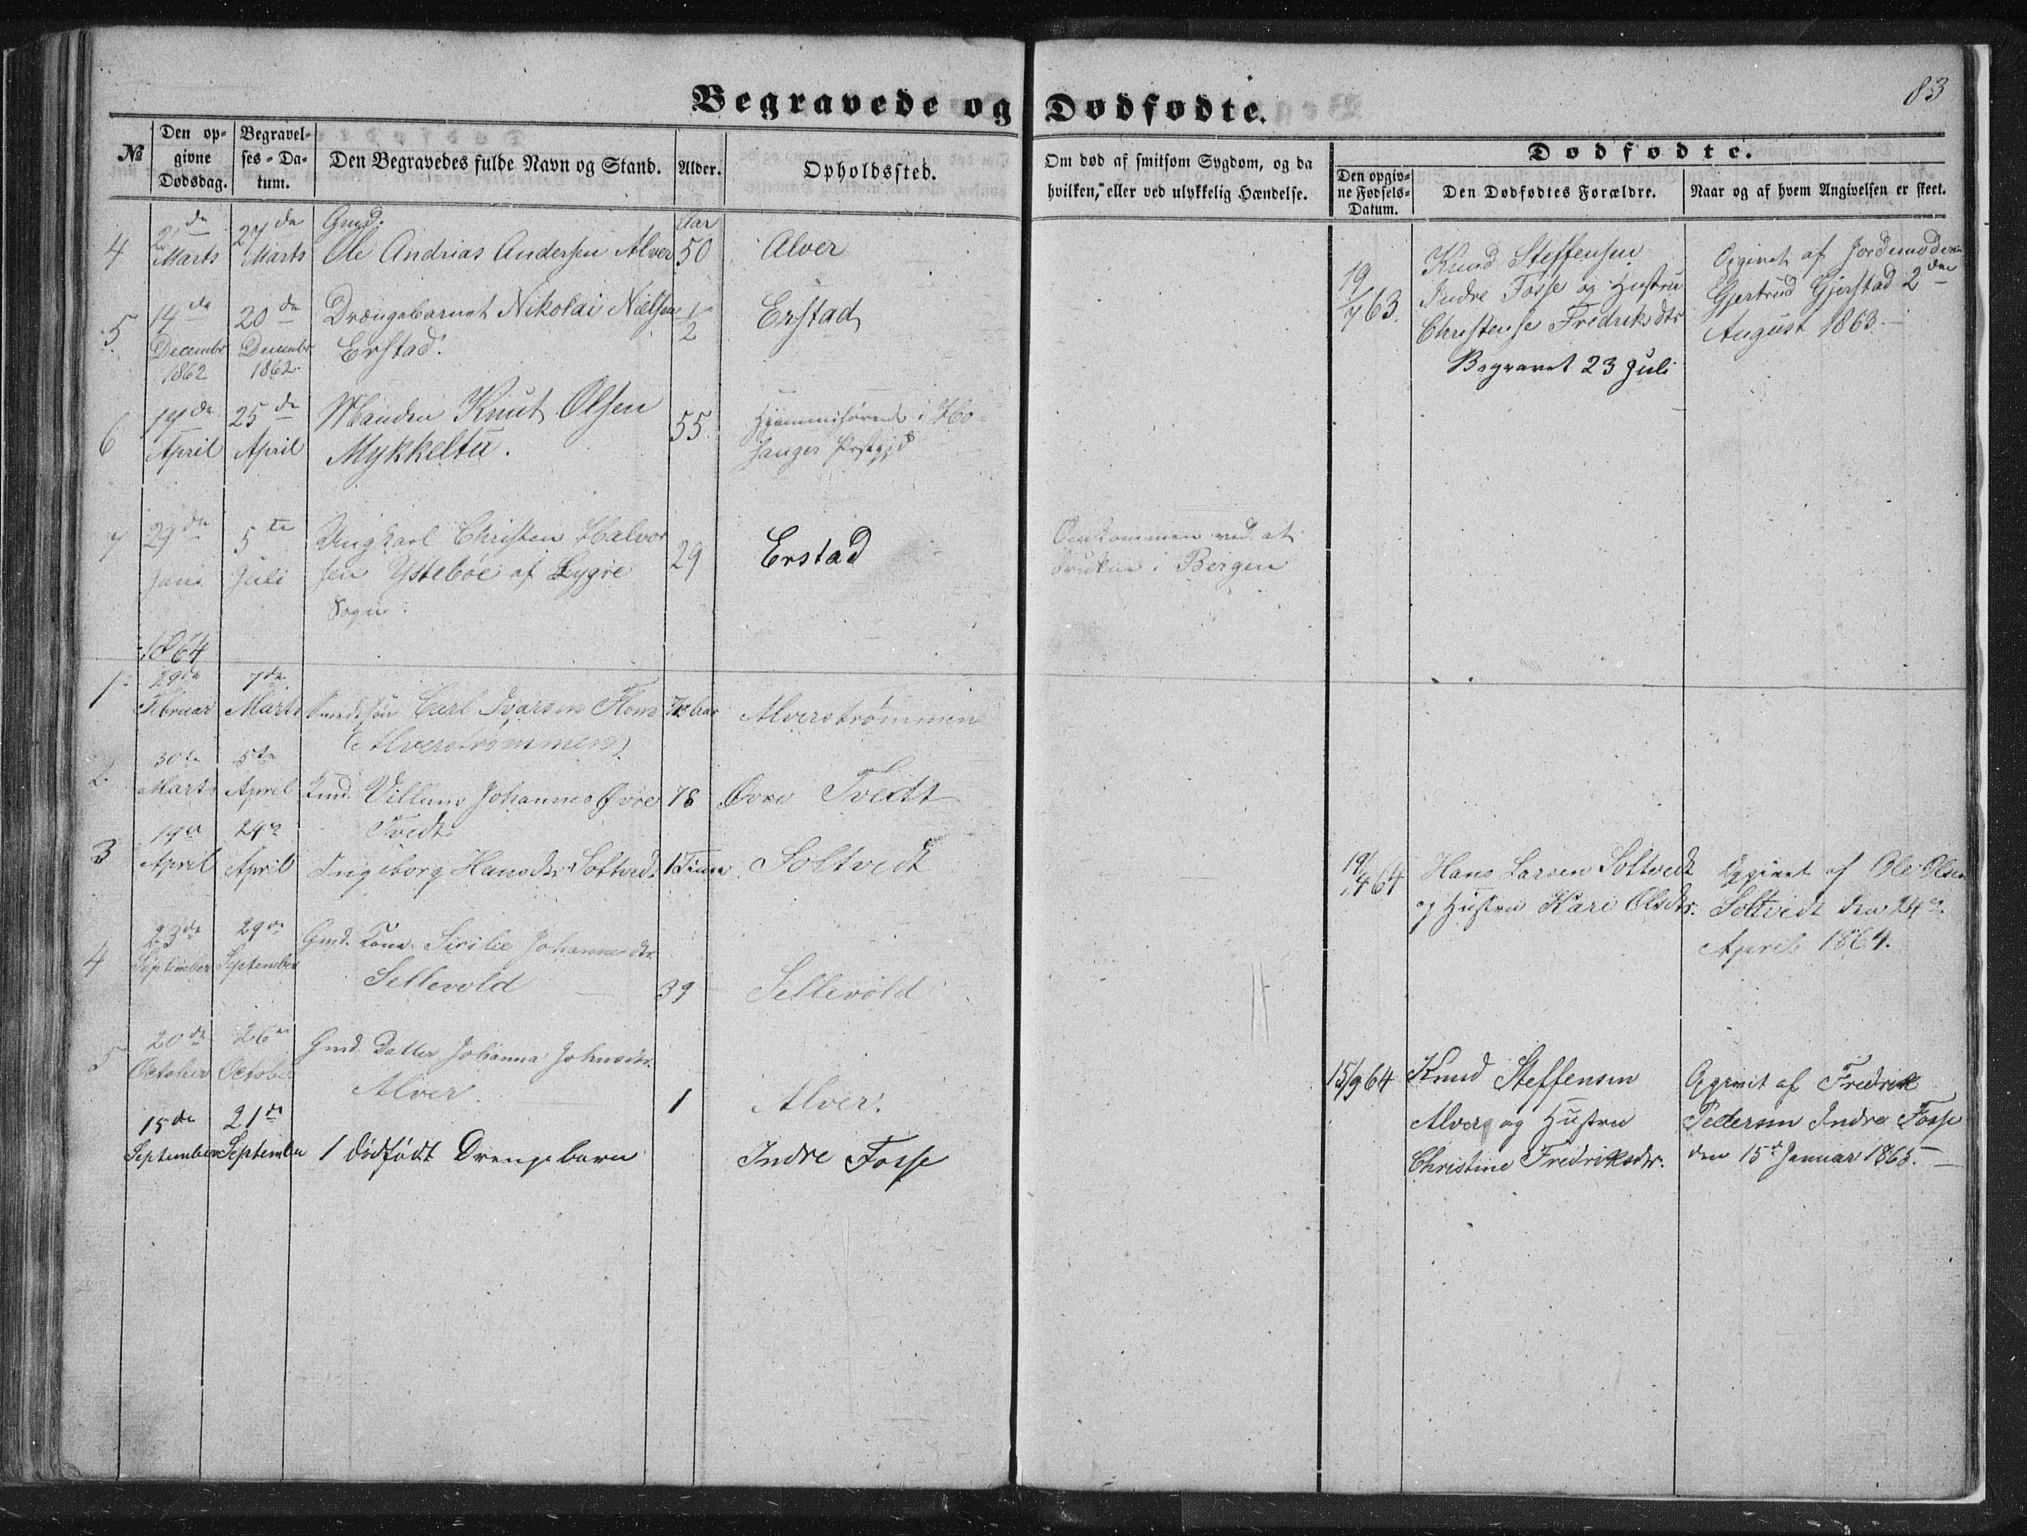 83
Begravede og Dødfødte.
№
Den op-
givne
Dødsdag.
Begravel-
ses-Da-
tum.
Den Begravedes fulde Navn og Stand.
Alder.
Opholdssted.
Om død af smitsom Sygdom, og da
hvilken, eller ved ulykkelig Hændelse.
Dødfødte.
Den opgiv-
ne Fødsels-
Datum.
Den Dødfødtes Forældre.
Naar og af hvem Angivelsen er skeet.
4
Marts
27de
Marts
Gmd.
Ole Andrias Andersen Alver
Aar
50
Alver
5
14de
Decembr
1862
20de
Decembr
1862.
Drængebarnet Nikolai Nielsen
Erstad.
1/2
Erstad
6
17de
April
25de
April
Manden Knut Olsen
Mykkeltu.
55
Hjemmehørende i Ho-
sanger Prstgjd
7
29de
Juni
5te
Juli
Ungkarl Christen Halvor
sen Ystebøe af Lygre
Sogn.
29
Erstad
Omkommen ved at
drukne i Bergen
19/7 63.
Knud Steffensen
Indre Fosse og Hustru
Christense Fredriksdtr
Begravet 23 Juli
Opgivet af Jordemoderen
Gjertrud Gjerstad 2den
August 1863.
1864
1
29de
Februar
7de
Marts
Carl Ivarsen
(Alverstrømmen)
Alverstrømmen
2
30te
Marts
5te
April
Kmd. Villum Johannes Øvre
Tvedt
78
Øvre Tvedt
3
19de
April
24de
April
Ingeborg Hansdtr Soltvedt
1 Time
Soltvedt
19/4 64
Hans Larsen Soltvedt
og Hustru Kari Olsdtr.
Opgivet af Ole Olsen
Soltvedt den 24de
April 1864.
4
23de
September
29de
September
Gmd. Kone Sicilie Johannesdtr.
Sellevold
39
Sellevold
5
20de
October
26de
October
Gmd. Datter Johanna Johnsdtr.
Alver.
1
Alver.
15de
September
21de
September
1 dødfødt Drengebarn
Indre Fosse
15/9 64
Knud Steffensen
Alver og Hustru
Christine Fredriksdtr.
Opgivet af Fredrik
Pedersen Indre Fosse
den 15de Januar 1865.